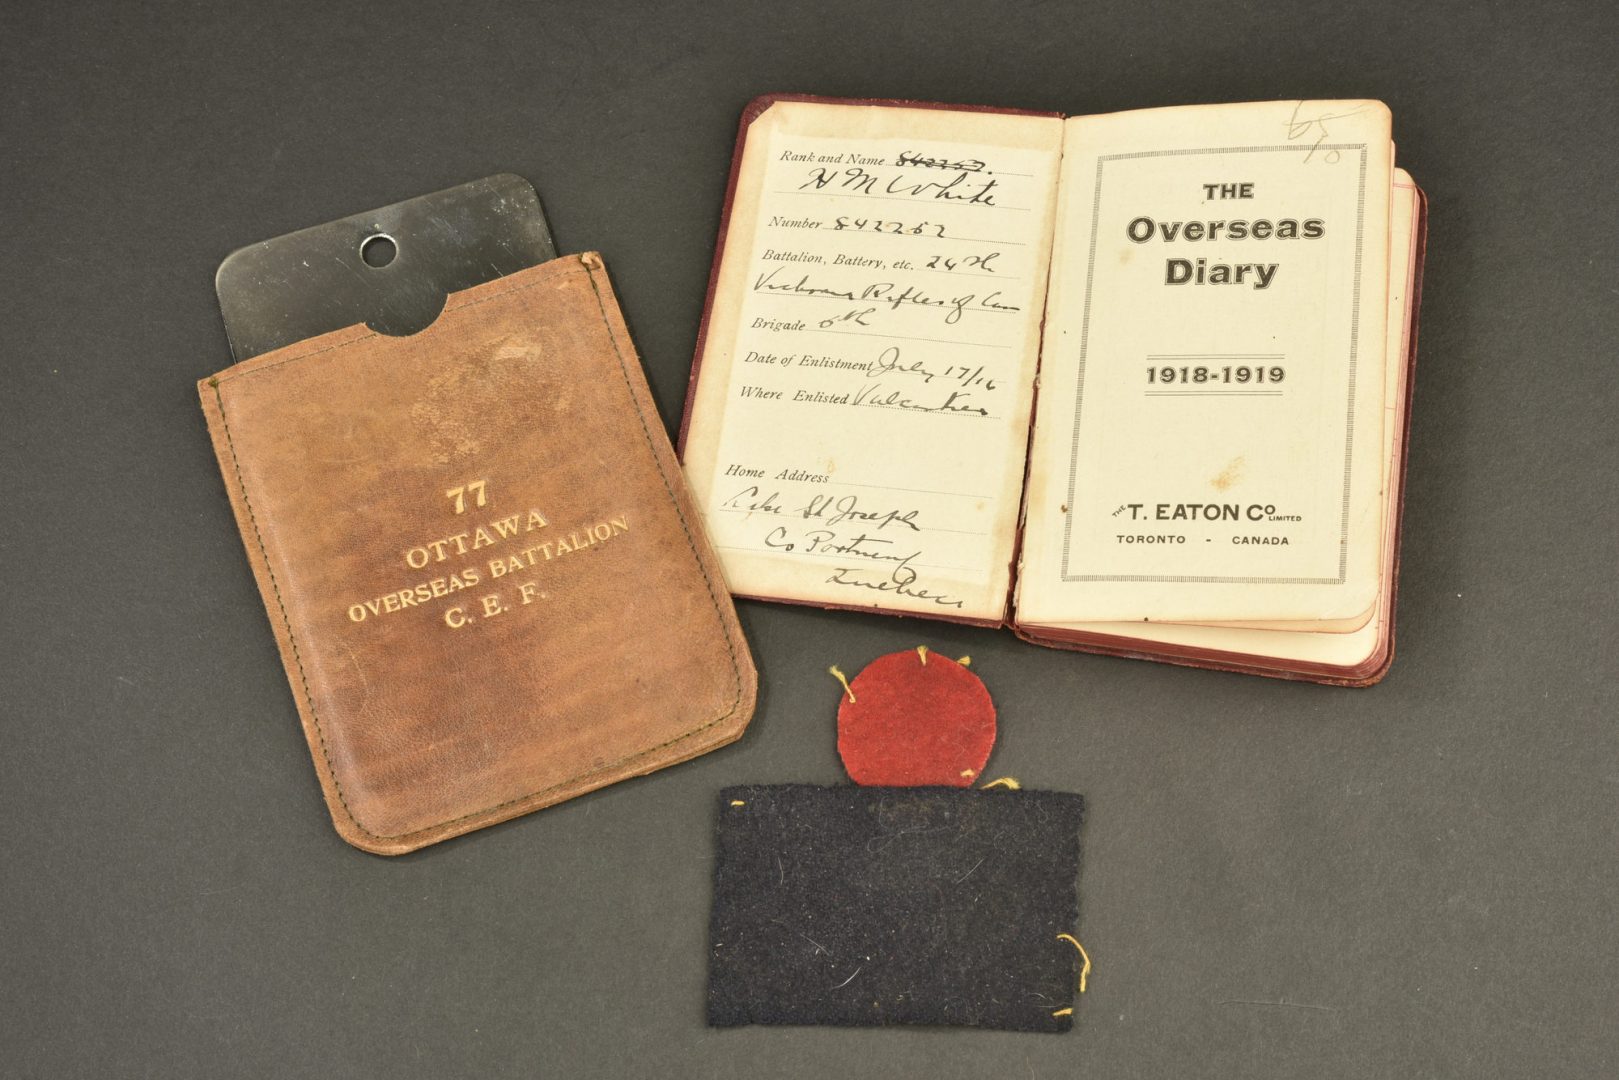 77
OTTAWA
OVERSEAS BATTALION
C. E. F.
Rank and Name 842252.
H M White
Number 842252
Battalion, Battery, etc. 24th
Rifles of Can
Brigade 6th
Date of Enlistment July 17/16
Where Enlisted
Home Address
Lake St Joseph
Co Portneuf
Quebec
THE
Overseas
Diary
1918-1919
THE T. EATON CO LIMITED
TORONTO - CANADA